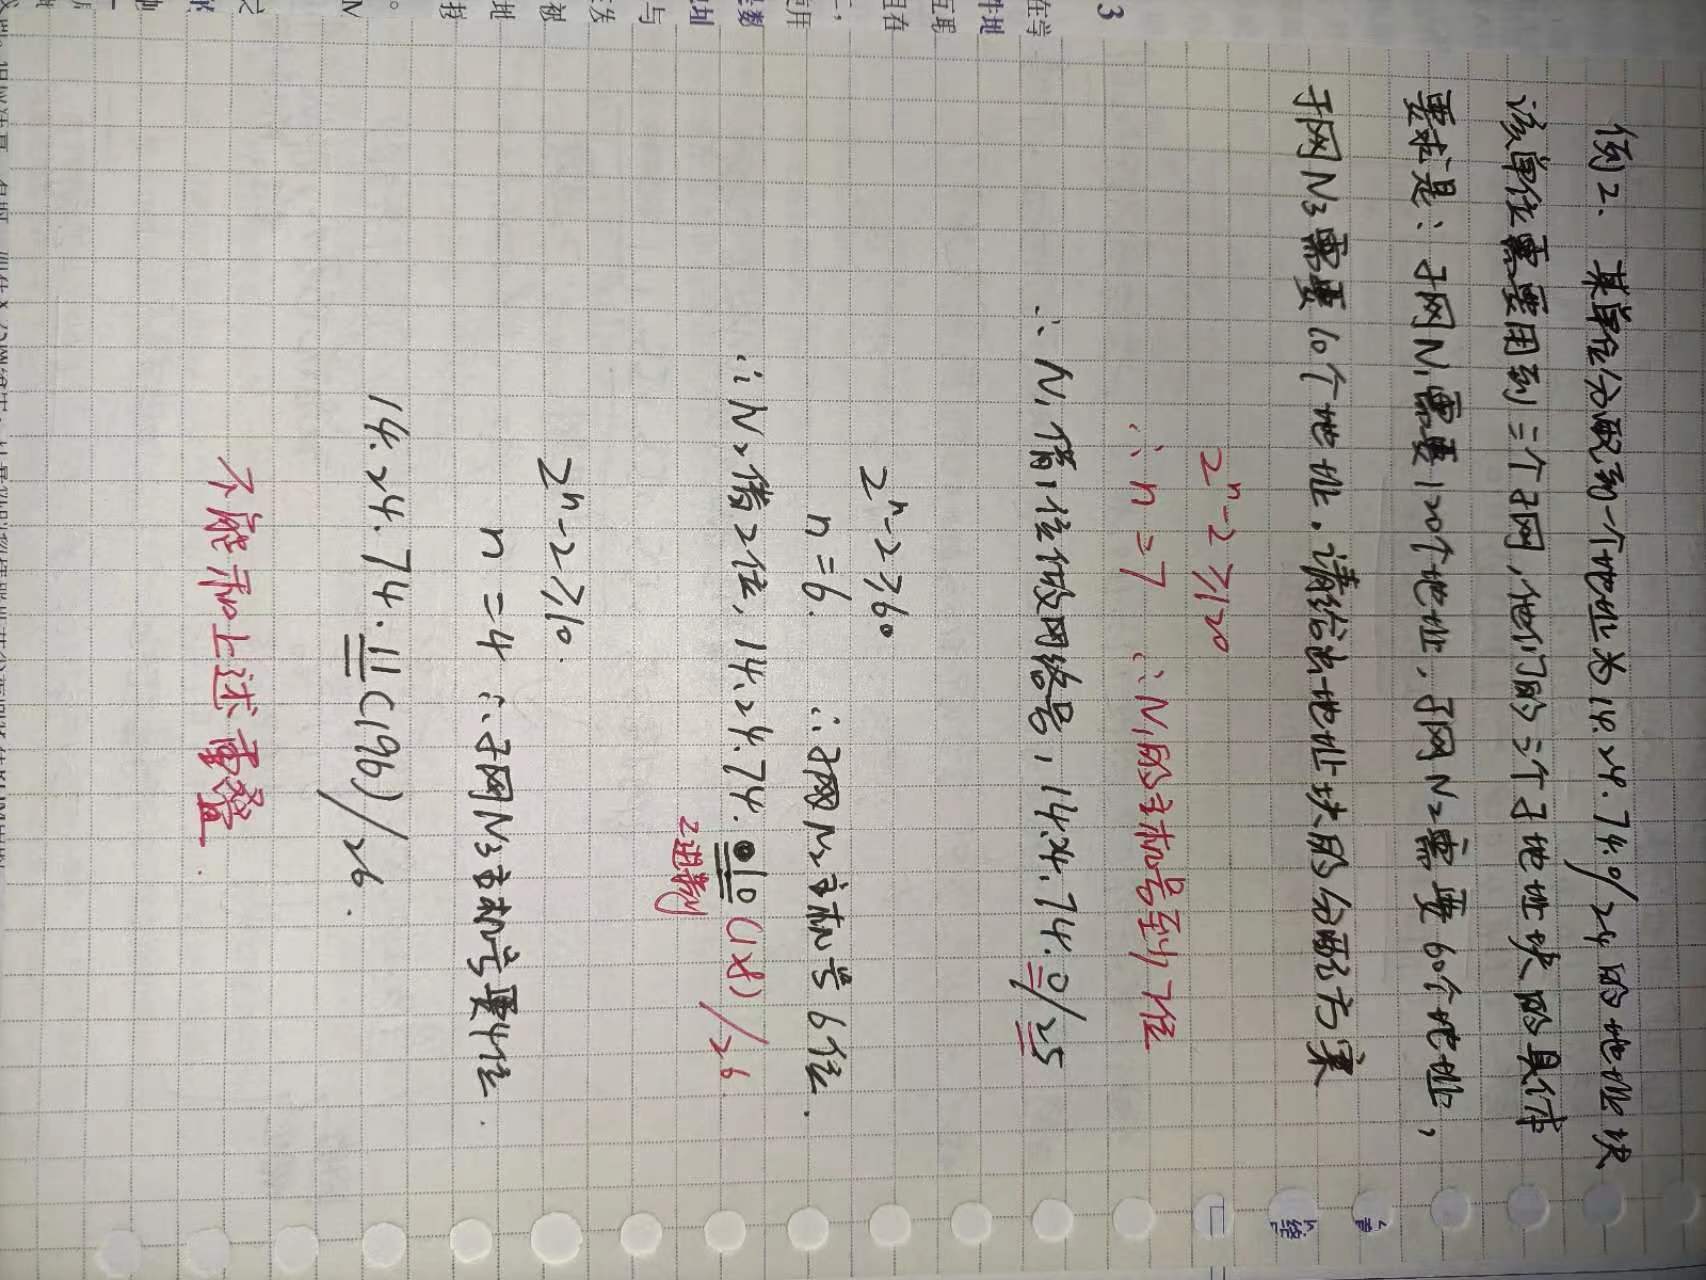 例2. 某单位分配到一个地址为14.24.74.0/24的地址块
该单位需要用到三个子网,他们的三个子地址块的具体
要求是:子网N1需要120个地址,子网N2需要60个地址,
子网N3需要10个地址。请给出地址块的分配方案
2ⁿ-2≥120
∴n=7 ∴N1的主机号至少7位
∴N1借1位做网络号,14.24.74.0/25
2ⁿ-2≥60
n=6. ∴子网N2主机号6位.
∴N2借2位,14.24.74.10(128)/26.
2进制
2ⁿ-2≥10.
n=4 ∴子网N3主机号要4位.
14.24.74.11(196)/26.
不能和上述重叠.
3
在学
件地
互联
且在
使用
是数
地址
与
发
被
地
按
。
M
之
的
首
络